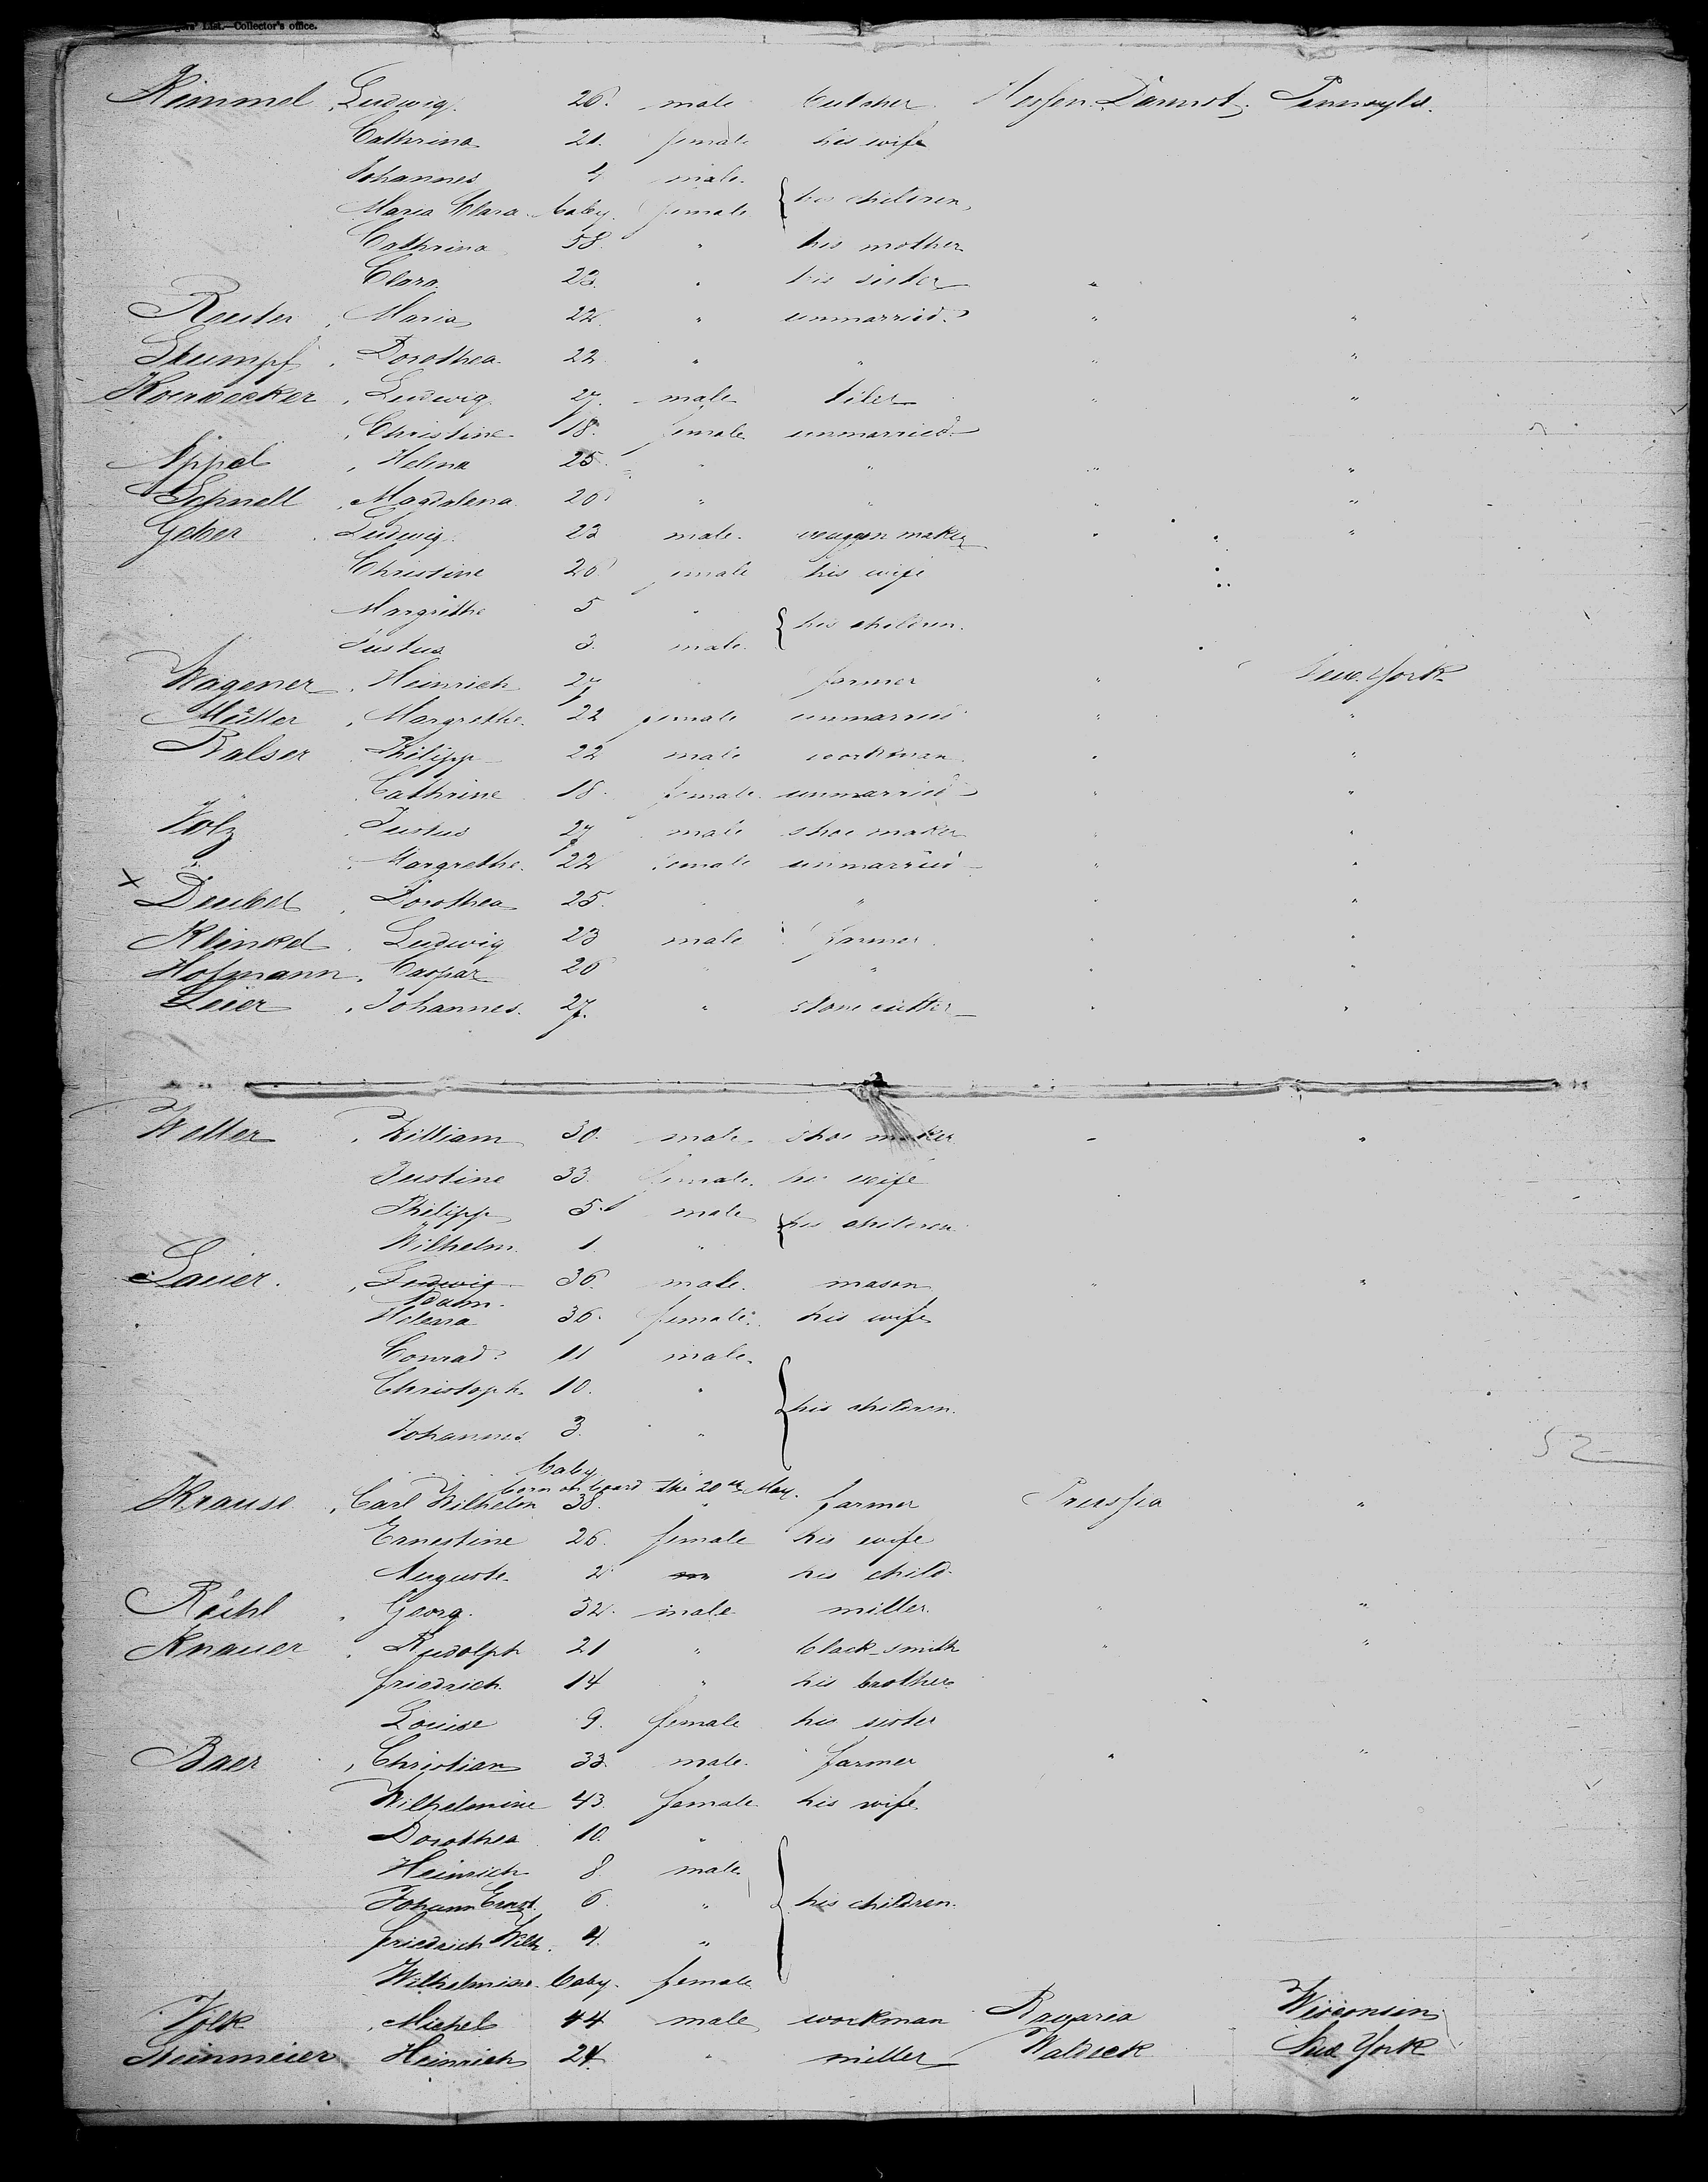 List.—Collector's office.
Kimmel, Ludwig. 26. male butcher Hessen Darmst. Pennsylv.
Cathrina 21. female his wife
Johannes 4 male
Maria Clara baby. female { his children
Cathrina 58. " his mother
Clara 23. " his sister "
Reuter, Maria 22. " unmarried " "
Stumpf, Dorothea 22 " " " "
Koerwecker, Ludwig 27. male tiler " "
, Christine 18. female unmarried
Appel, Helena 25. " " " "
Schnell, Magdalena 20 " " " "
Geber, Ludwig 23 male waggon maker " "
Christine 20 female his wife
Margrethe 5 "
Justus 3. male { his children.
Wagener, Heinrich 27 " farmer " New-York
Müller, Margrethe. 22 female unmarried " "
Balser, Philipp 22 male workman " "
" Cathrine 18. female unmarried " "
Volz, Justus 27 male shoe maker " "
" Margrethe. 22 female unmarried " "
x Deubel, Dorothea 25. " " " "
Klinkel, Ludwig 23 male farmer " "
Hofmann, Caspar 26 " " " "
Leier, Johannes. 27. " stone cutter " "
Welter, William 30. male shoe maker " "
Justine 33. female. his wife
Philipp 5. male
Wilhelm. 1 " { his children
Lauer, Ludwig 36. male. mason " "
Adam.
Helena 36. female. his wife
Conrad 11 male.
Christoph 10. "
Johannes 3. " { his children.
baby
born on board the 20th May.
Krause, Carl Wilhelm 38. " farmer Prussia "
Ernestine 26. female his wife
Auguste 2 his child
Röthl, Georg. 32. male miller. " "
Knauer, Rudolph 21 " black-smith " "
Friedrich 14 " his brother
Louise 9. female his sister
52
Baer, Christian 33. male. farmer " "
Wilhelmine 43. female his wife
Dorothea 10. "
Heinrich 8 male
Johann Ernst. 6. " { his children.
Friedrich Wilh. 4. "
Wilhelmine. baby. female
Volk, Michel 44 male workman Bavaria Wisconsin
Steinmeier Heinrich 24 " miller Waldeck New York